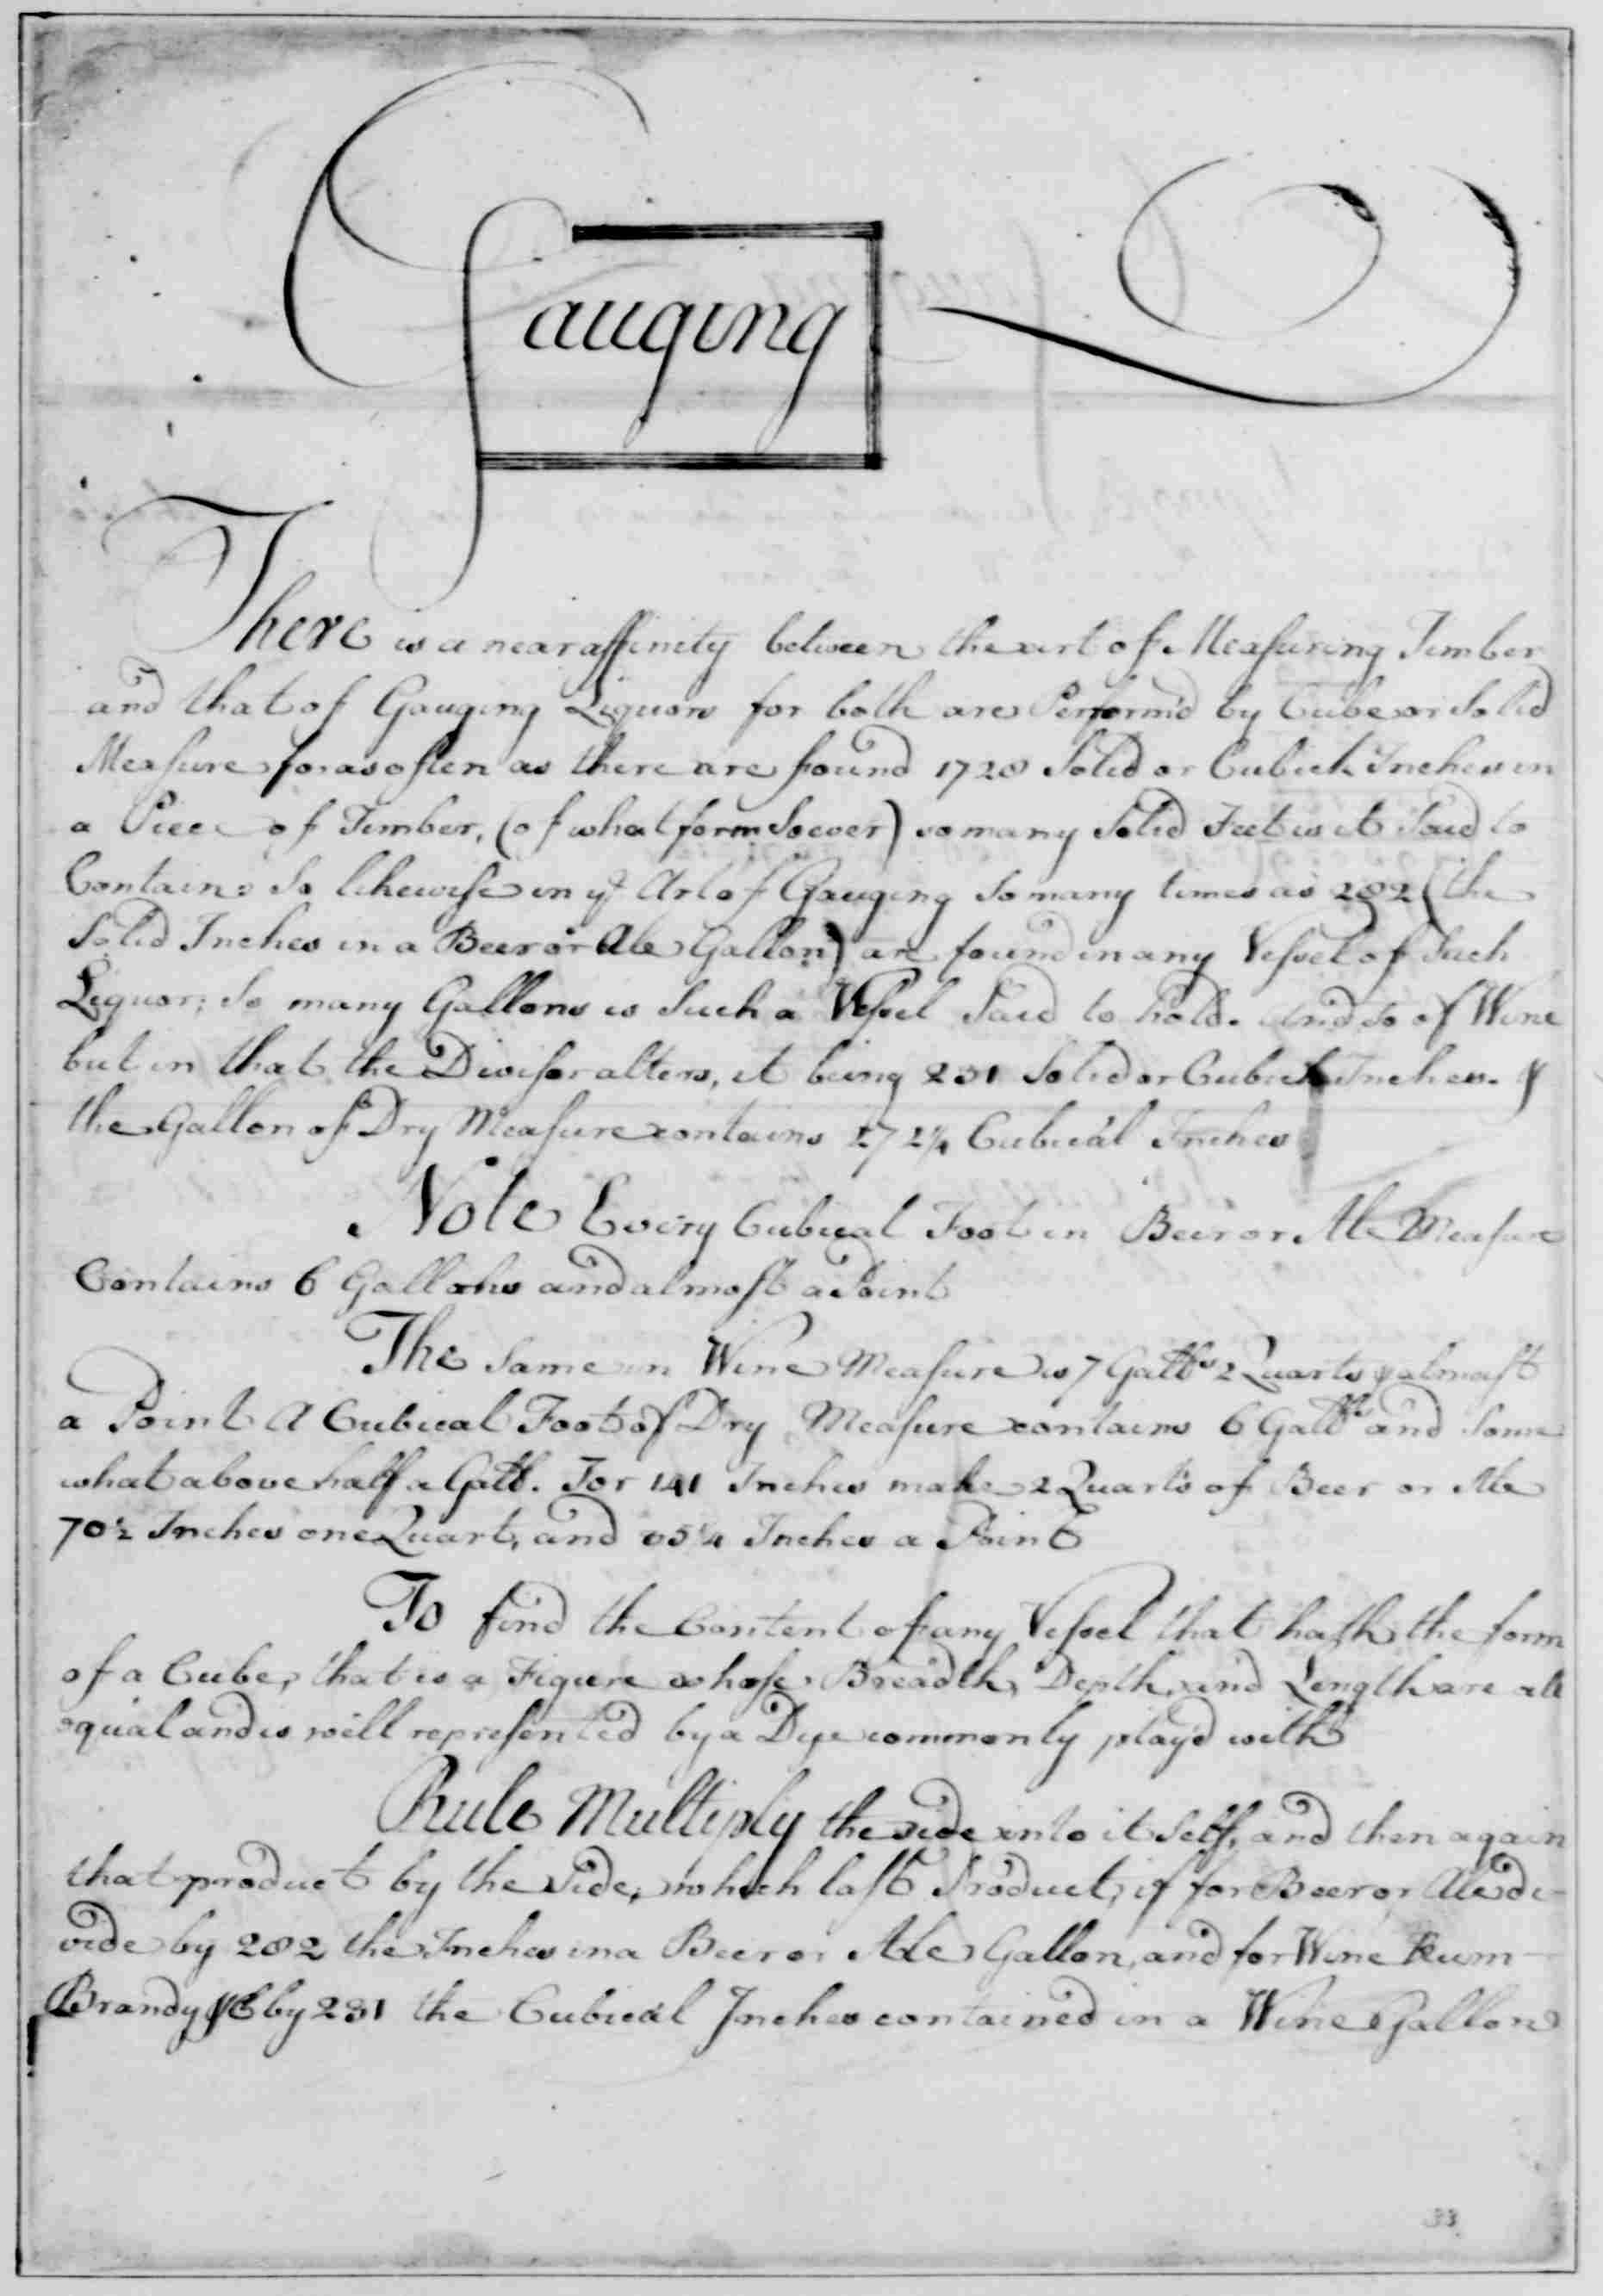 Gauging
There is a near affinity between the art of Measuring Timber
and that of Gauging Liquors for both are Perform'd by Cube or Solid
Measure for as often as there are found 1728 Solid or Cubick Inches in
a Piece of Timber, (of what form Soever) so many Solid Feet is it Said to
Contain: So likewise in ye Art of Gauging So many times as 282 (the
Solid Inches in a Beer or Ale Gallon) are found in any Vessel of Such
Liquor; So many Gallons is Such a Vessel Said to hold. And so of Wine
but in that the Divisor alters, it being 231 Solid or Cubick Inches. &
the Gallon of Dry Measure contains 272¼ Cubical Inches
Note Every Cubical Foot in Beer or Ale Measure
Contains 6 Gallons and almost a Point
The Same in Wine Measure is 7 Galls 2 Quarts & almost
a Point A Cubical Foot of Dry Measure contains 6 Galls and Some
what above half a Gall. For 141 Inches make 2 Quarts of Beer or Ale
70½ Inches one Quart, and 35¼ Inches a Point
To find the Content of any Vessel that hath the form
of a Cube, that is a Figure whose Breadth, Depth, and Length are all
equal and is well represented by a Dye commonly play'd with
Rule Multiply the side into it Self, and then again
that product by the Side, which last Product, if for Beer or Ale di-
vide by 282 the Inches in a Beer or Ale Gallon, and for Wine Rum
Brandy &c by 231 the Cubical Inches contained in a Wine Gallon
33